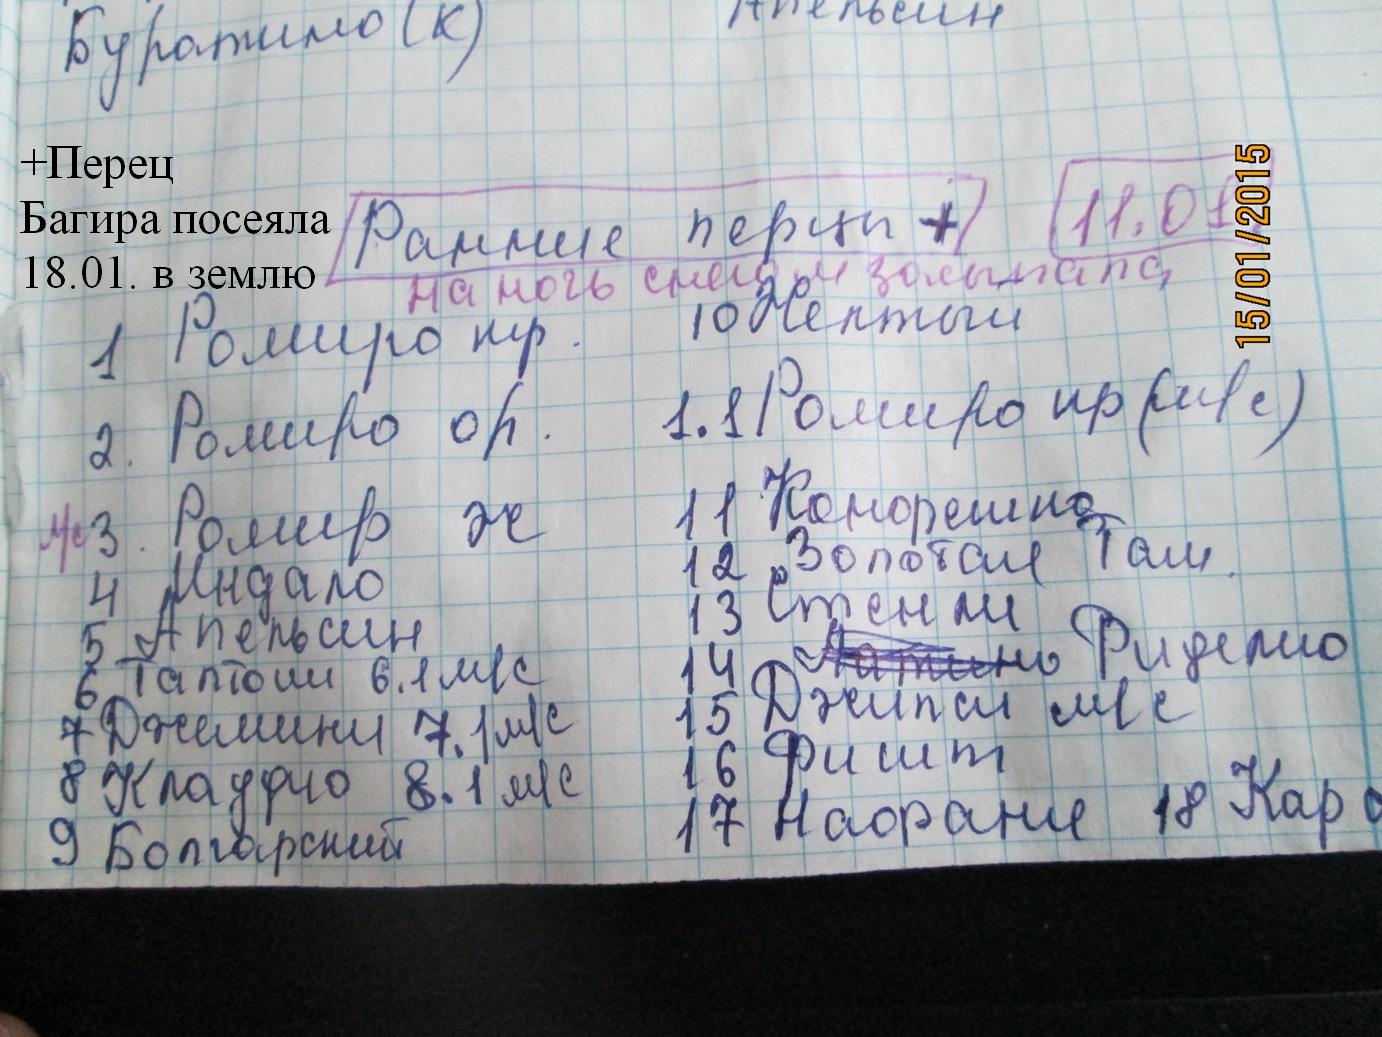 Буратино (к)
Апельсин
+Перец
Багира посеяла
18.01. в землю
Ранние перцы +
11.01
15/01/2015
на ночь снег и
1 Ромиро кр.
10 Желтый
2. Ромиро ор.
1.1 Ромиро кр (м/с)
м/с 3. Ромир ж
11 Конорешно
4 Индало
12 Золотая Там.
5 Апельсин
13 Стенли
6 Таптоши 6.1 м/с
14 Фиделио
7 Джемини 7.1 м/с
15 Джипси м/с
8 Клаудио 8.1 м/с
16 Фишт
9 Болгарский
17 Наорани 18 Кар